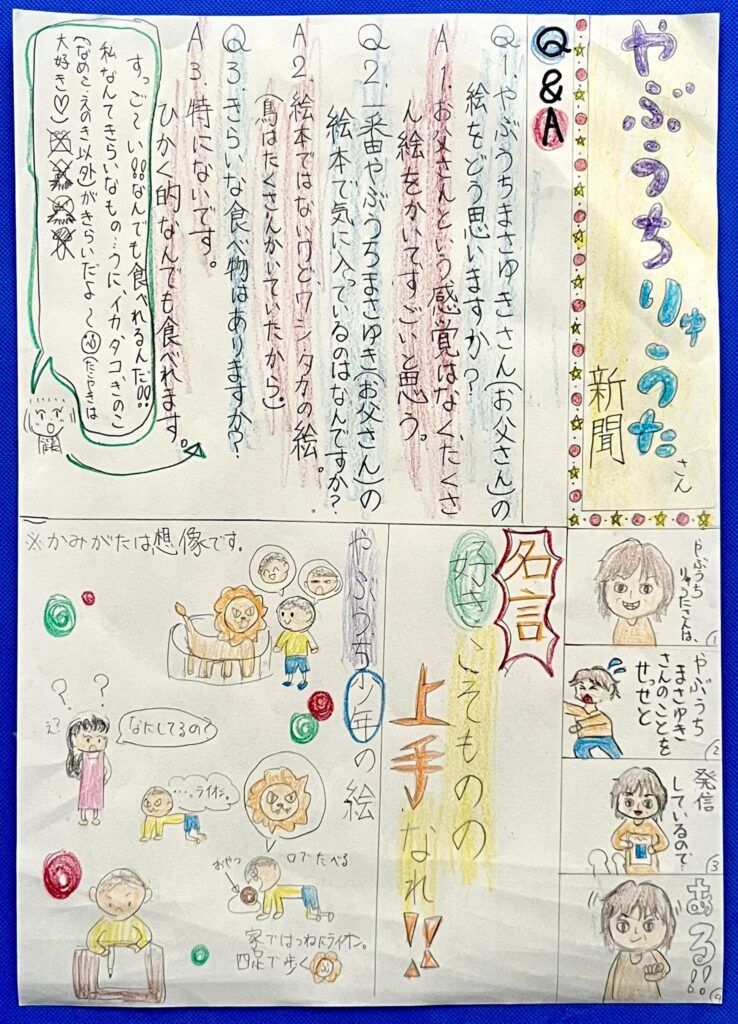 やぶうちりゅうたさん
新聞
Q&A
Q1.やぶうちまさゆきさん(お父さん)の
絵をどう思いますか?
A1.お父さんという感覚はなく、たくさ
ん絵をかいてすごいと思う。
Q2.一番やぶうちまさゆき(お父さん)の
絵本で気に入っているのはなんですか?
A2.絵本ではないけどワシタカの絵。
(鳥はたくさんかいていたから。)
Q3.きらいな食べ物はありますか?
A3.特にないです。
ひかく的なんでも食べれます。
すっご〜い!!なんでも食べれるんだ!!
私なんてきらいなもの…うに、イカ、タコ、きのこ
(なめこ、えのき以外)がきらいだよ〜
たこやきは
大好き♡)
やぶうち
りゅうたさんは、
1
やぶうち
まさゆき
さんのことを
せっせと
2
発信
しているので
3
ある!!
4
名言
好きこそものの
上手なれ!!
やぶうち少年の絵
※かみがたは想像です。
え?
なにしてるの?
…ライオン。
おやつ
口でたべる
家ではつねにライオン。
四足で歩く